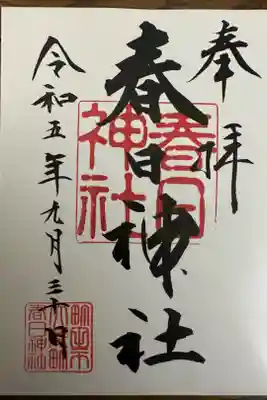 奉拝
春日神社
令和五年九月三十日
春日
神社
春日神社